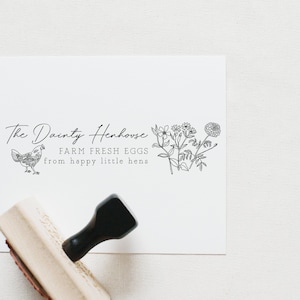 The Dainty Henhouse
FARM FRESH EGGS
from happy little hens